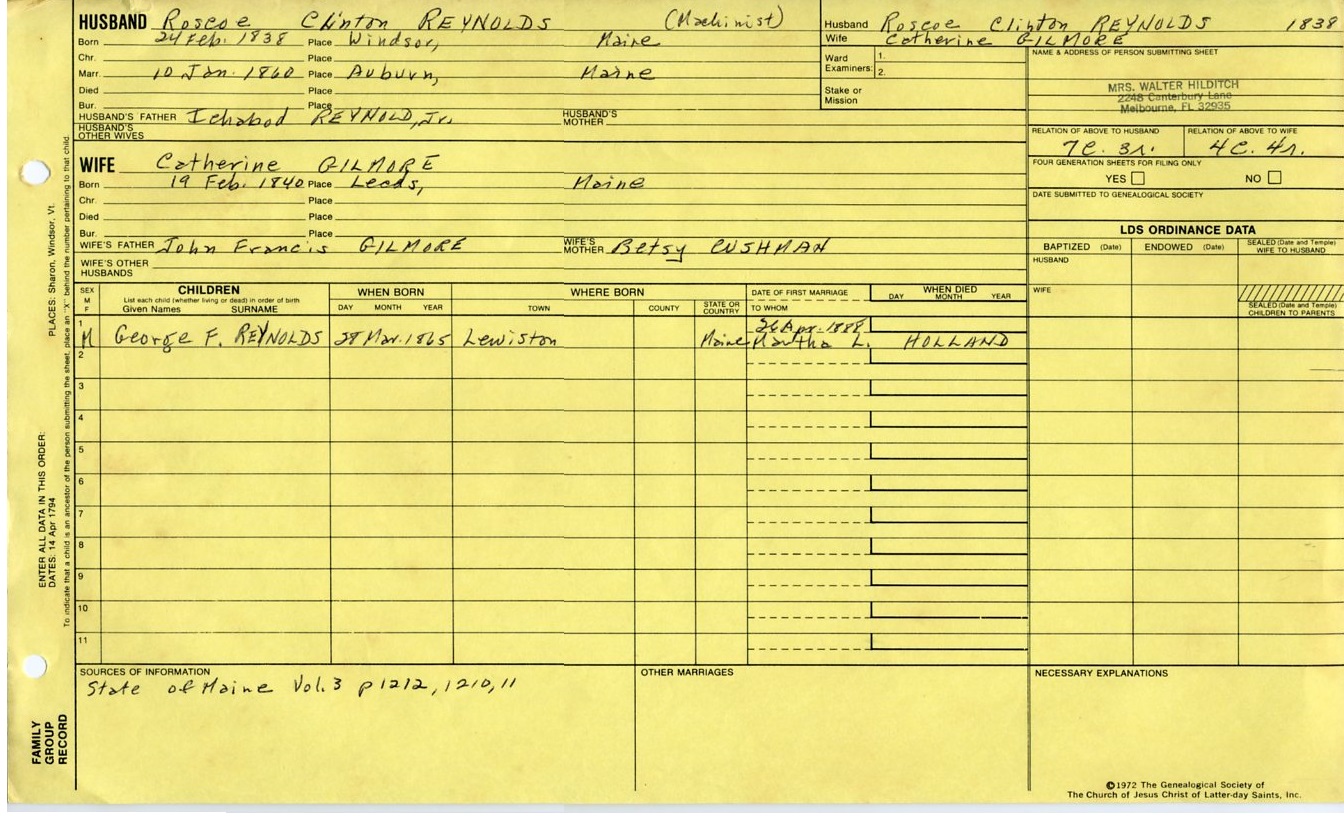 HUSBAND Roscoe Clinton REYNOLDS (Machinist)
Born 24 Feb. 1838 Place Windsor, Maine
Chr. Place
Marr. 10 Jan. 1860 Place Auburn, Maine
Died Place
Bur. Place
HUSBAND'S FATHER Ichabod REYNOLD, Jr. HUSBAND'S MOTHER
HUSBAND'S OTHER WIVES
WIFE Catherine GILMORE
Born 19 Feb. 1840 Place Leeds, Maine
Chr. Place
Died Place
Bur. Place
WIFE'S FATHER John Francis GILMORE WIFE'S MOTHER Betsy CUSHMAN
WIFE'S OTHER HUSBANDS
Husband Roscoe Clinton REYNOLDS 1838
Wife Catherine GILMORE
Ward Examiners: 1.
2.
Stake or Mission
NAME & ADDRESS OF PERSON SUBMITTING SHEET
MRS. WALTER HILDITCH
2248 Canterbury Lane
Melbourne, FL 32935
RELATION OF ABOVE TO HUSBAND RELATION OF ABOVE TO WIFE
7C. 3r. 4C. 4r.
FOUR GENERATION SHEETS FOR FILING ONLY
YES NO
DATE SUBMITTED TO GENEALOGICAL SOCIETY
LDS ORDINANCE DATA
BAPTIZED (Date) ENDOWED (Date) SEALED (Date and Temple) WIFE TO HUSBAND
HUSBAND
WIFE
SEALED (Date and Temple) CHILDREN TO PARENTS
SEX M F
CHILDREN
List each child (whether living or dead) in order of birth
Given Names SURNAME
WHEN BORN
DAY MONTH YEAR
WHERE BORN
TOWN COUNTY STATE OR COUNTRY
DATE OF FIRST MARRIAGE
TO WHOM
WHEN DIED
DAY MONTH YEAR
1
26 Apr. 1888
M George F. REYNOLDS 28 Mar. 1865 Lewiston Maine Martha L. HOLLAND
2
3
4
5
6
7
8
9
10
11
SOURCES OF INFORMATION
State of Maine Vol. 3 p 1212, 1210, 11
OTHER MARRIAGES
NECESSARY EXPLANATIONS
©1972 The Genealogical Society of
The Church of Jesus Christ of Latter-day Saints, Inc.
ENTER ALL DATA IN THIS ORDER:
DATES: 14 Apr 1794
PLACES: Sharon, Windsor, Vt.
To indicate that a child is an ancestor of the person submitting the sheet, place an "X" behind the number pertaining to that child.
FAMILY
GROUP
RECORD